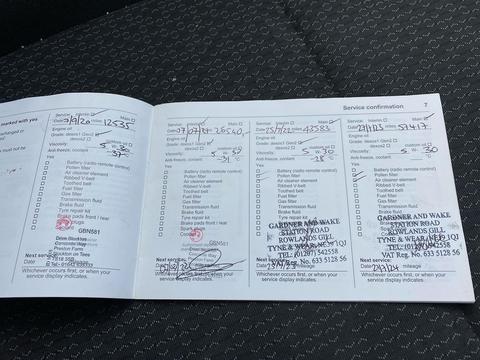 Service confirmation 7
marked with yes
Service: Interim Main
Date 20 miles 12535
Engine oil
Grade: dexos1 Gen2
dexos2
custom oil
Viscosity: 5 W- 30
Anti-freeze, coolant -37 °C
Yes
Battery (radio remote control)
Pollen filter
Air cleaner element
Ribbed V-belt
Toothed belt
Fuel filter
Gas filter
Transmission fluid
Brake fluid
Tyre repair kit
Brake pads front / rear
GBN581
Drive Stockton
Concorde Way
Preston Farm
Stockton on Tees
Next service:
Date
Whichever occurs first, or when your
service display indicates.
Service: Interim Main
Date 07/07/21 miles 26540
Engine oil
Grade: dexos1 Gen2
dexos2
custom oil
Viscosity: 5 W- 30
Anti-freeze, coolant -31 °C
Yes
Battery (radio remote control)
Pollen filter
Air cleaner element
Ribbed V-belt
Toothed belt
Fuel filter
Gas filter
Transmission fluid
Brake fluid
Tyre repair kit
Brake pads front / rear
GBN581
Next service:
Whichever occurs first, or when your
service display indicates.
Service: Interim Main
Date 25/7/22 miles 43583
Engine oil
Grade: dexos1 Gen2
dexos2
custom oil
Viscosity: 5 W- 30
Anti-freeze, coolant -28 °C
Yes
Battery (radio remote control)
Pollen filter
Air cleaner element
Ribbed V-belt
Toothed belt
Fuel filter
Gas filter
Transmission fluid
Brake fluid
Tyre repair kit
GARDNER AND WAKE
STATION ROAD
ROWLANDS GILL
TYNE & WEAR NE39 1QJ
TEL: (01207) 542558
VAT Reg. No. 633 5128 56
Next service:
Date
Whichever occurs first, or when your
service display indicates.
Service: Interim Main
Date miles 57417
Engine oil
Grade: dexos1 Gen2
dexos2
custom oil
Viscosity: 5 W- 30
Anti-freeze, coolant °C
Yes
Battery (radio remote control)
Pollen filter
Air cleaner element
Ribbed V-belt
Toothed belt
Fuel filter
Gas filter
Transmission fluid
Brake fluid
Tyre repair kit
GARDNER AND WAKE
STATION ROAD
ROWLANDS GILL
TYNE & WEAR NE39 1QJ
TEL: (01207) 542558
VAT Reg. No. 633 5128 56
Next service:
Date mileage
Whichever occurs first, or when your
service display indicates.